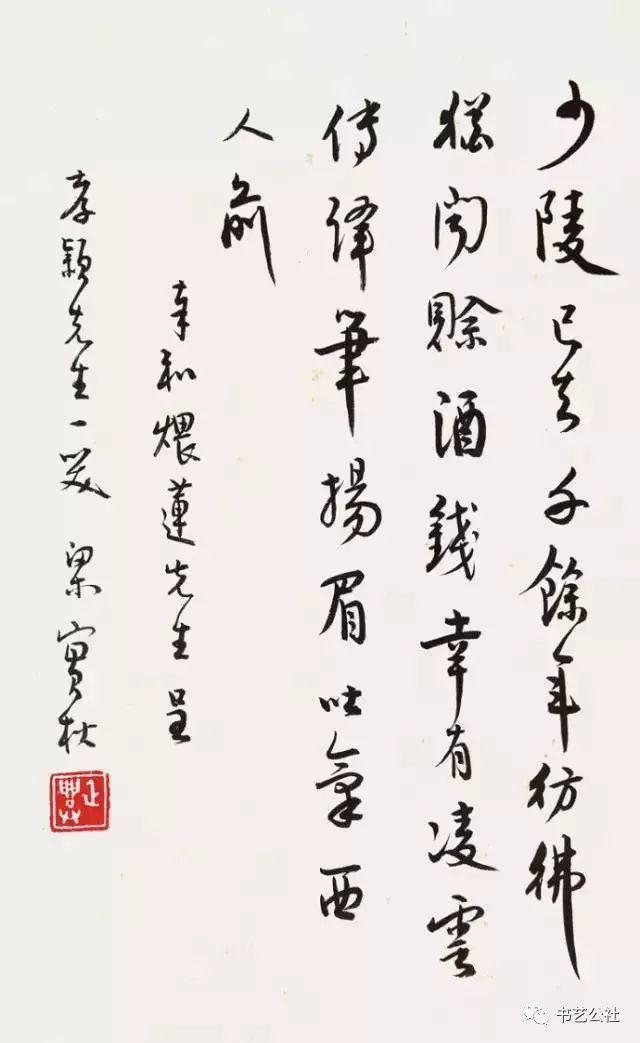 少陵已去千餘年彷彿
猶聞賒酒錢幸有凌雲
傳譯筆揚眉吐氣西
人前
奉和煨蓮先生呈
孝穎先生一笑 梁實秋
书艺公社